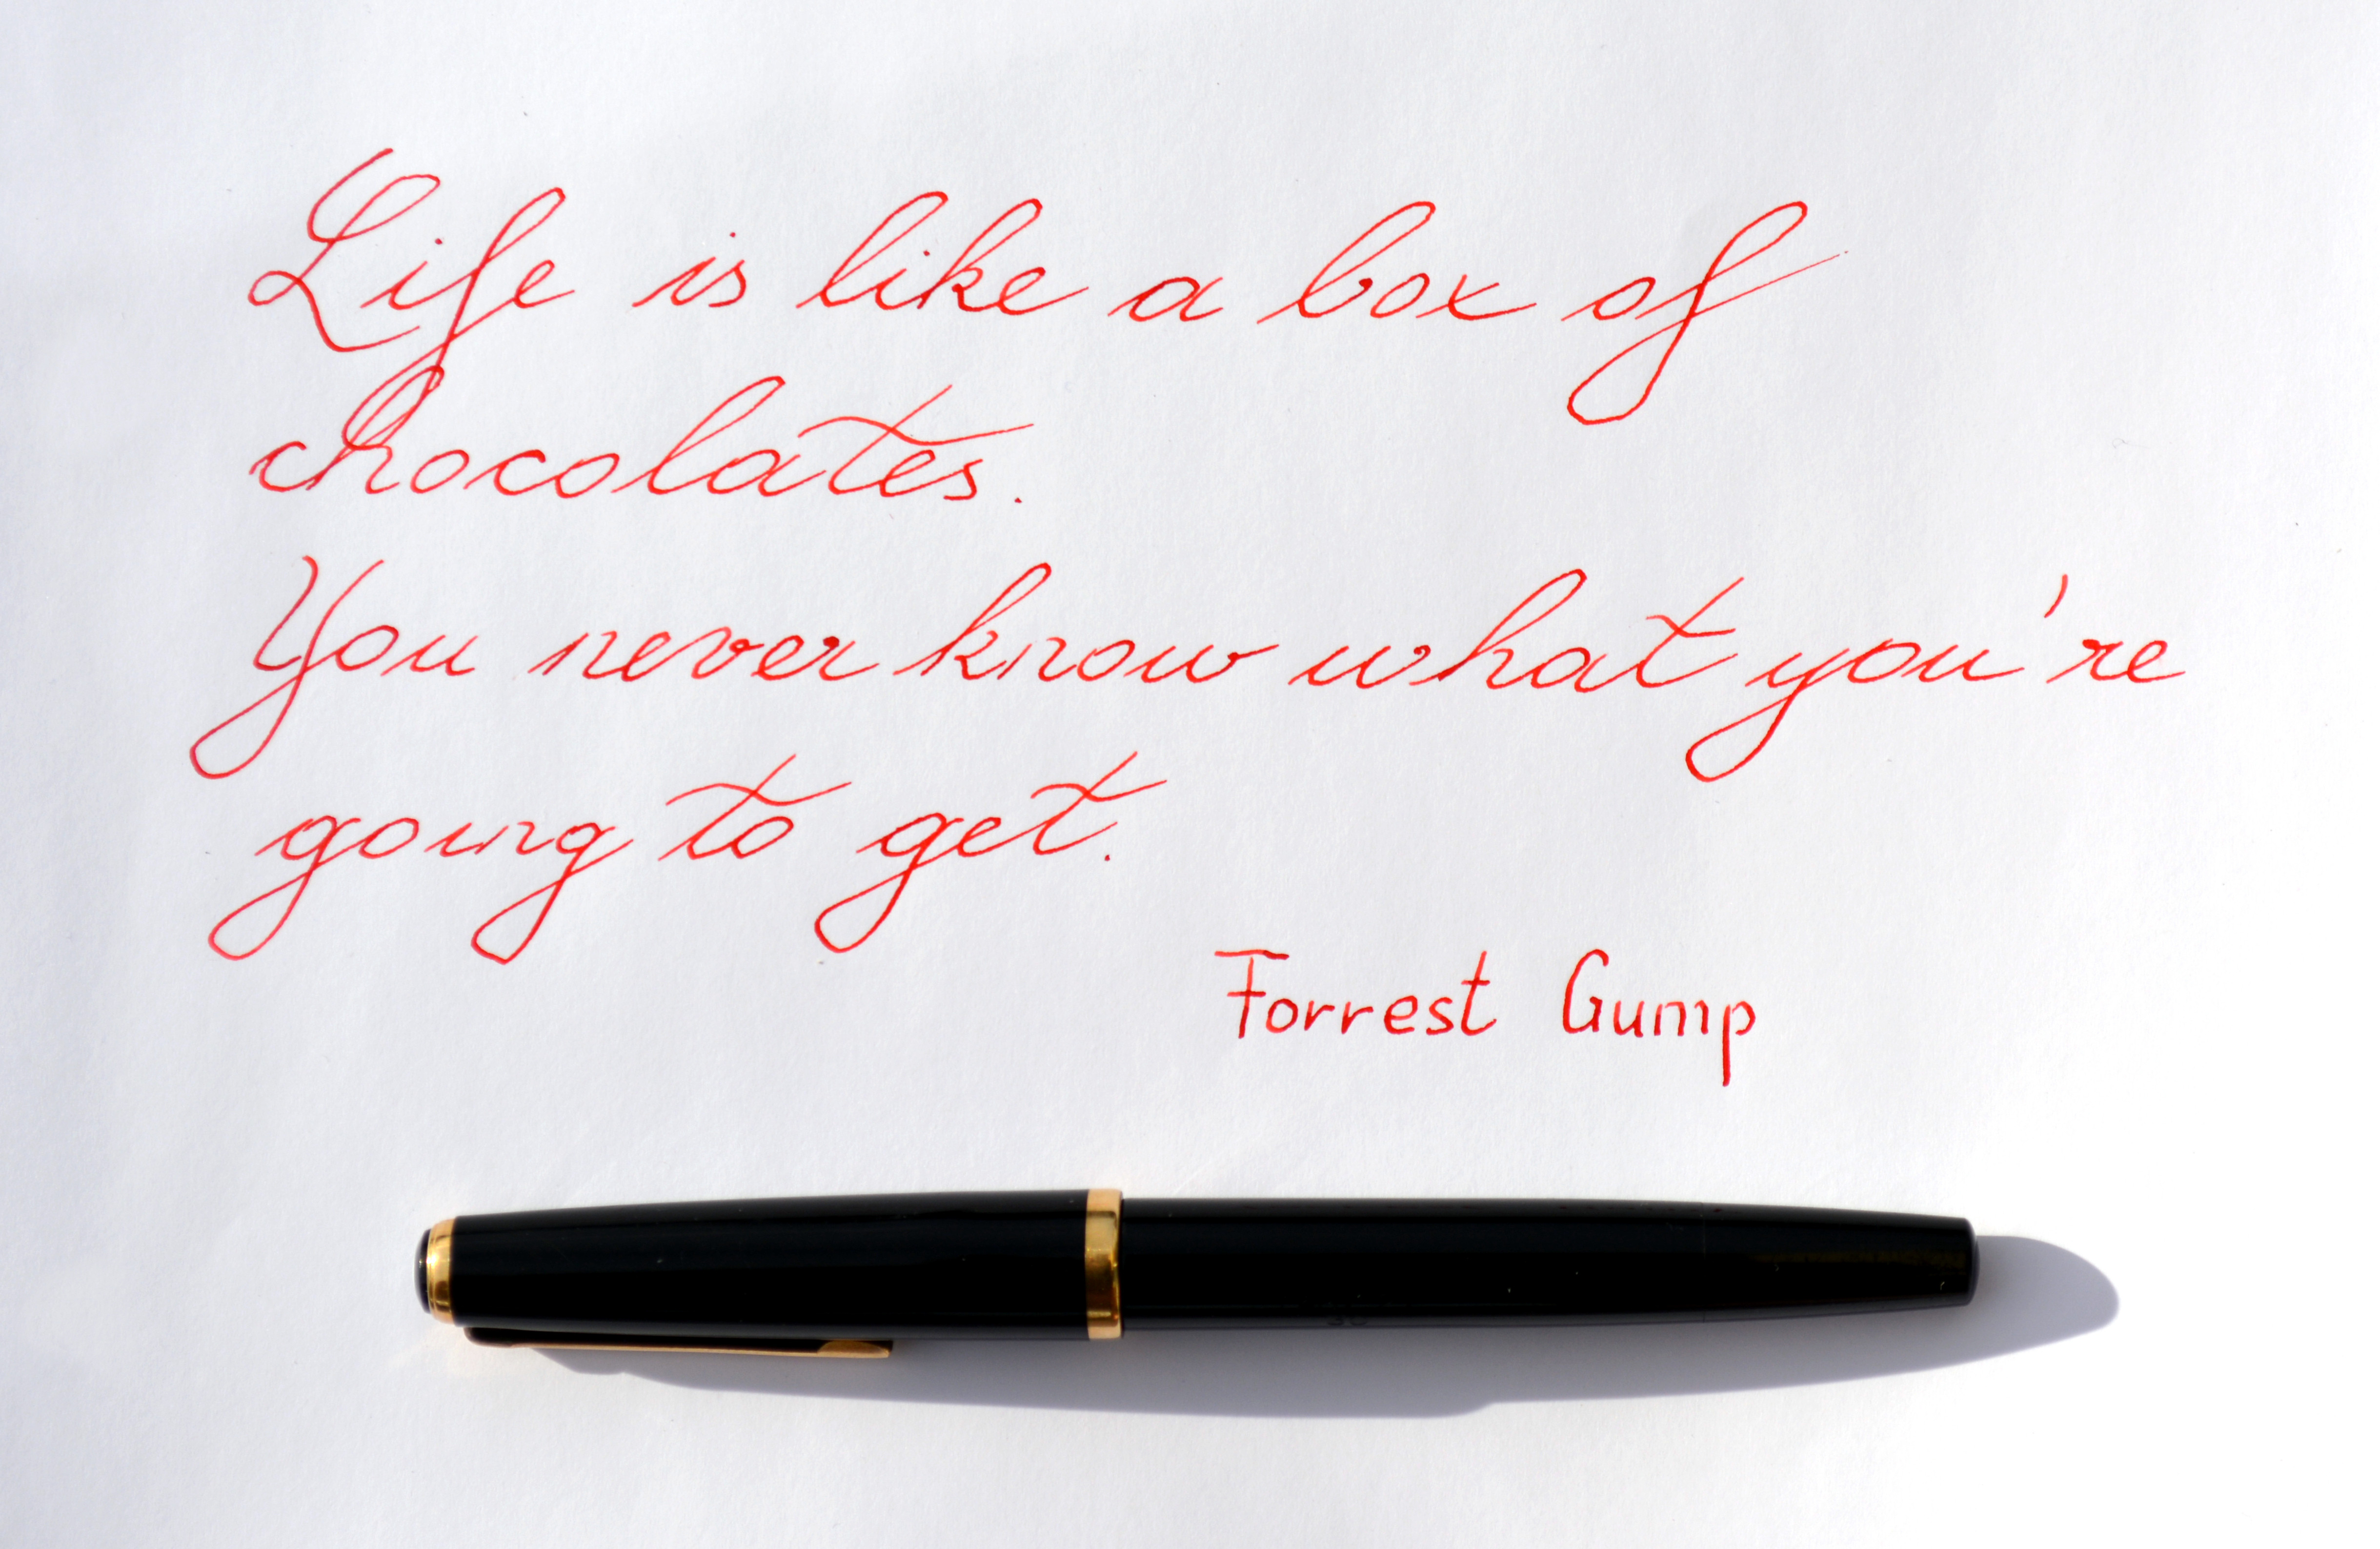 Life is like a box of
chocolates.
You never know what you're
going to get.
Forrest Gump